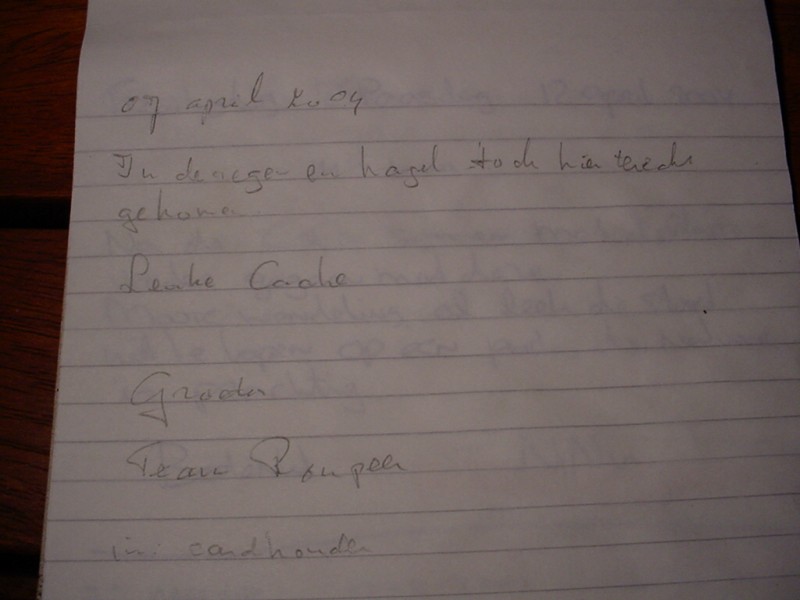 07 april 2004
In de regen en hagel toch hier terecht
gekomen.
Leuke Cache
Groeten
Team
in: cardhouder